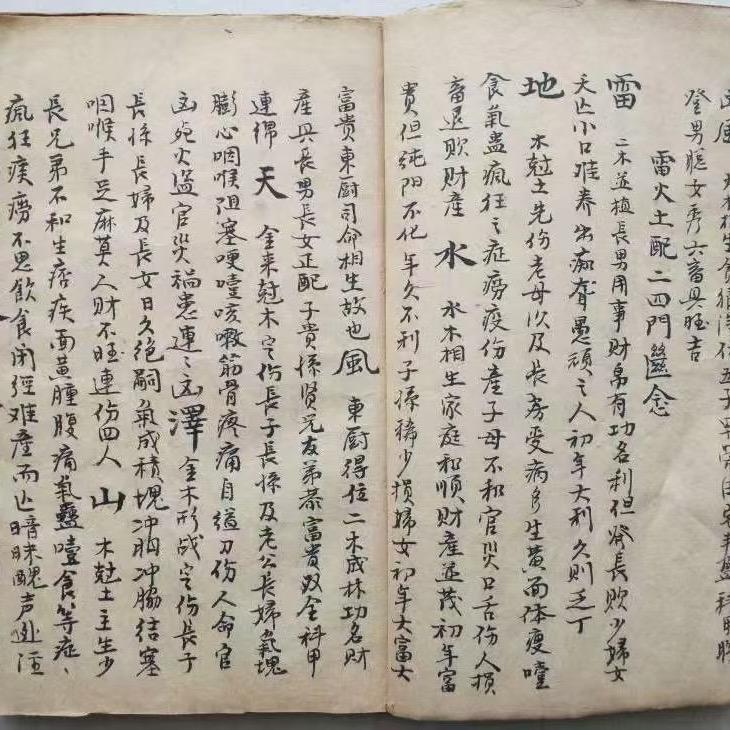 登男聪女秀六畜具旺吉
雷火土配二四門監念
雷 二木並植長男用事財帛有功名利但發長敗少婦女
天亾小口难养出痴聋愚頑之人初年大利久則乏丁
地 木尅土先伤老母以及長房受病多生黃面体瘦噎
食氣蛊瘋狂之症痨疫伤產子母不和官災口舌伤人損
畜退敗财產 水 水木相生家庭和順財產並茂初年富
貴但純阳不化年久不利子孫稀少損婦女初年大富大
富貴東厨司命相生故也風 東厨得位二木成林功名財
產具長男長女正配子貴孫賢兄友弟恭富貴双全科甲
連綿 天 金来尅木定伤長子長孫及老公長婦氣塊
膨心咽喉阻塞哽噎咳嗽筋骨疼痛自縊刀伤人命官
凶死火盜官災禍患連々凶澤 金木形战定伤長子
長孫長婦及長女日久绝嗣氣成積塊冲胸冲脇结塞
咽喉手足麻莫人财不旺連伤四人 山 木尅土主生少
長兄弟不和生痞疾面黃腫腹痛氣蠱噎食等症、
瘋狂痰痨不思飲食闭徑难產而亾暗昧醜声